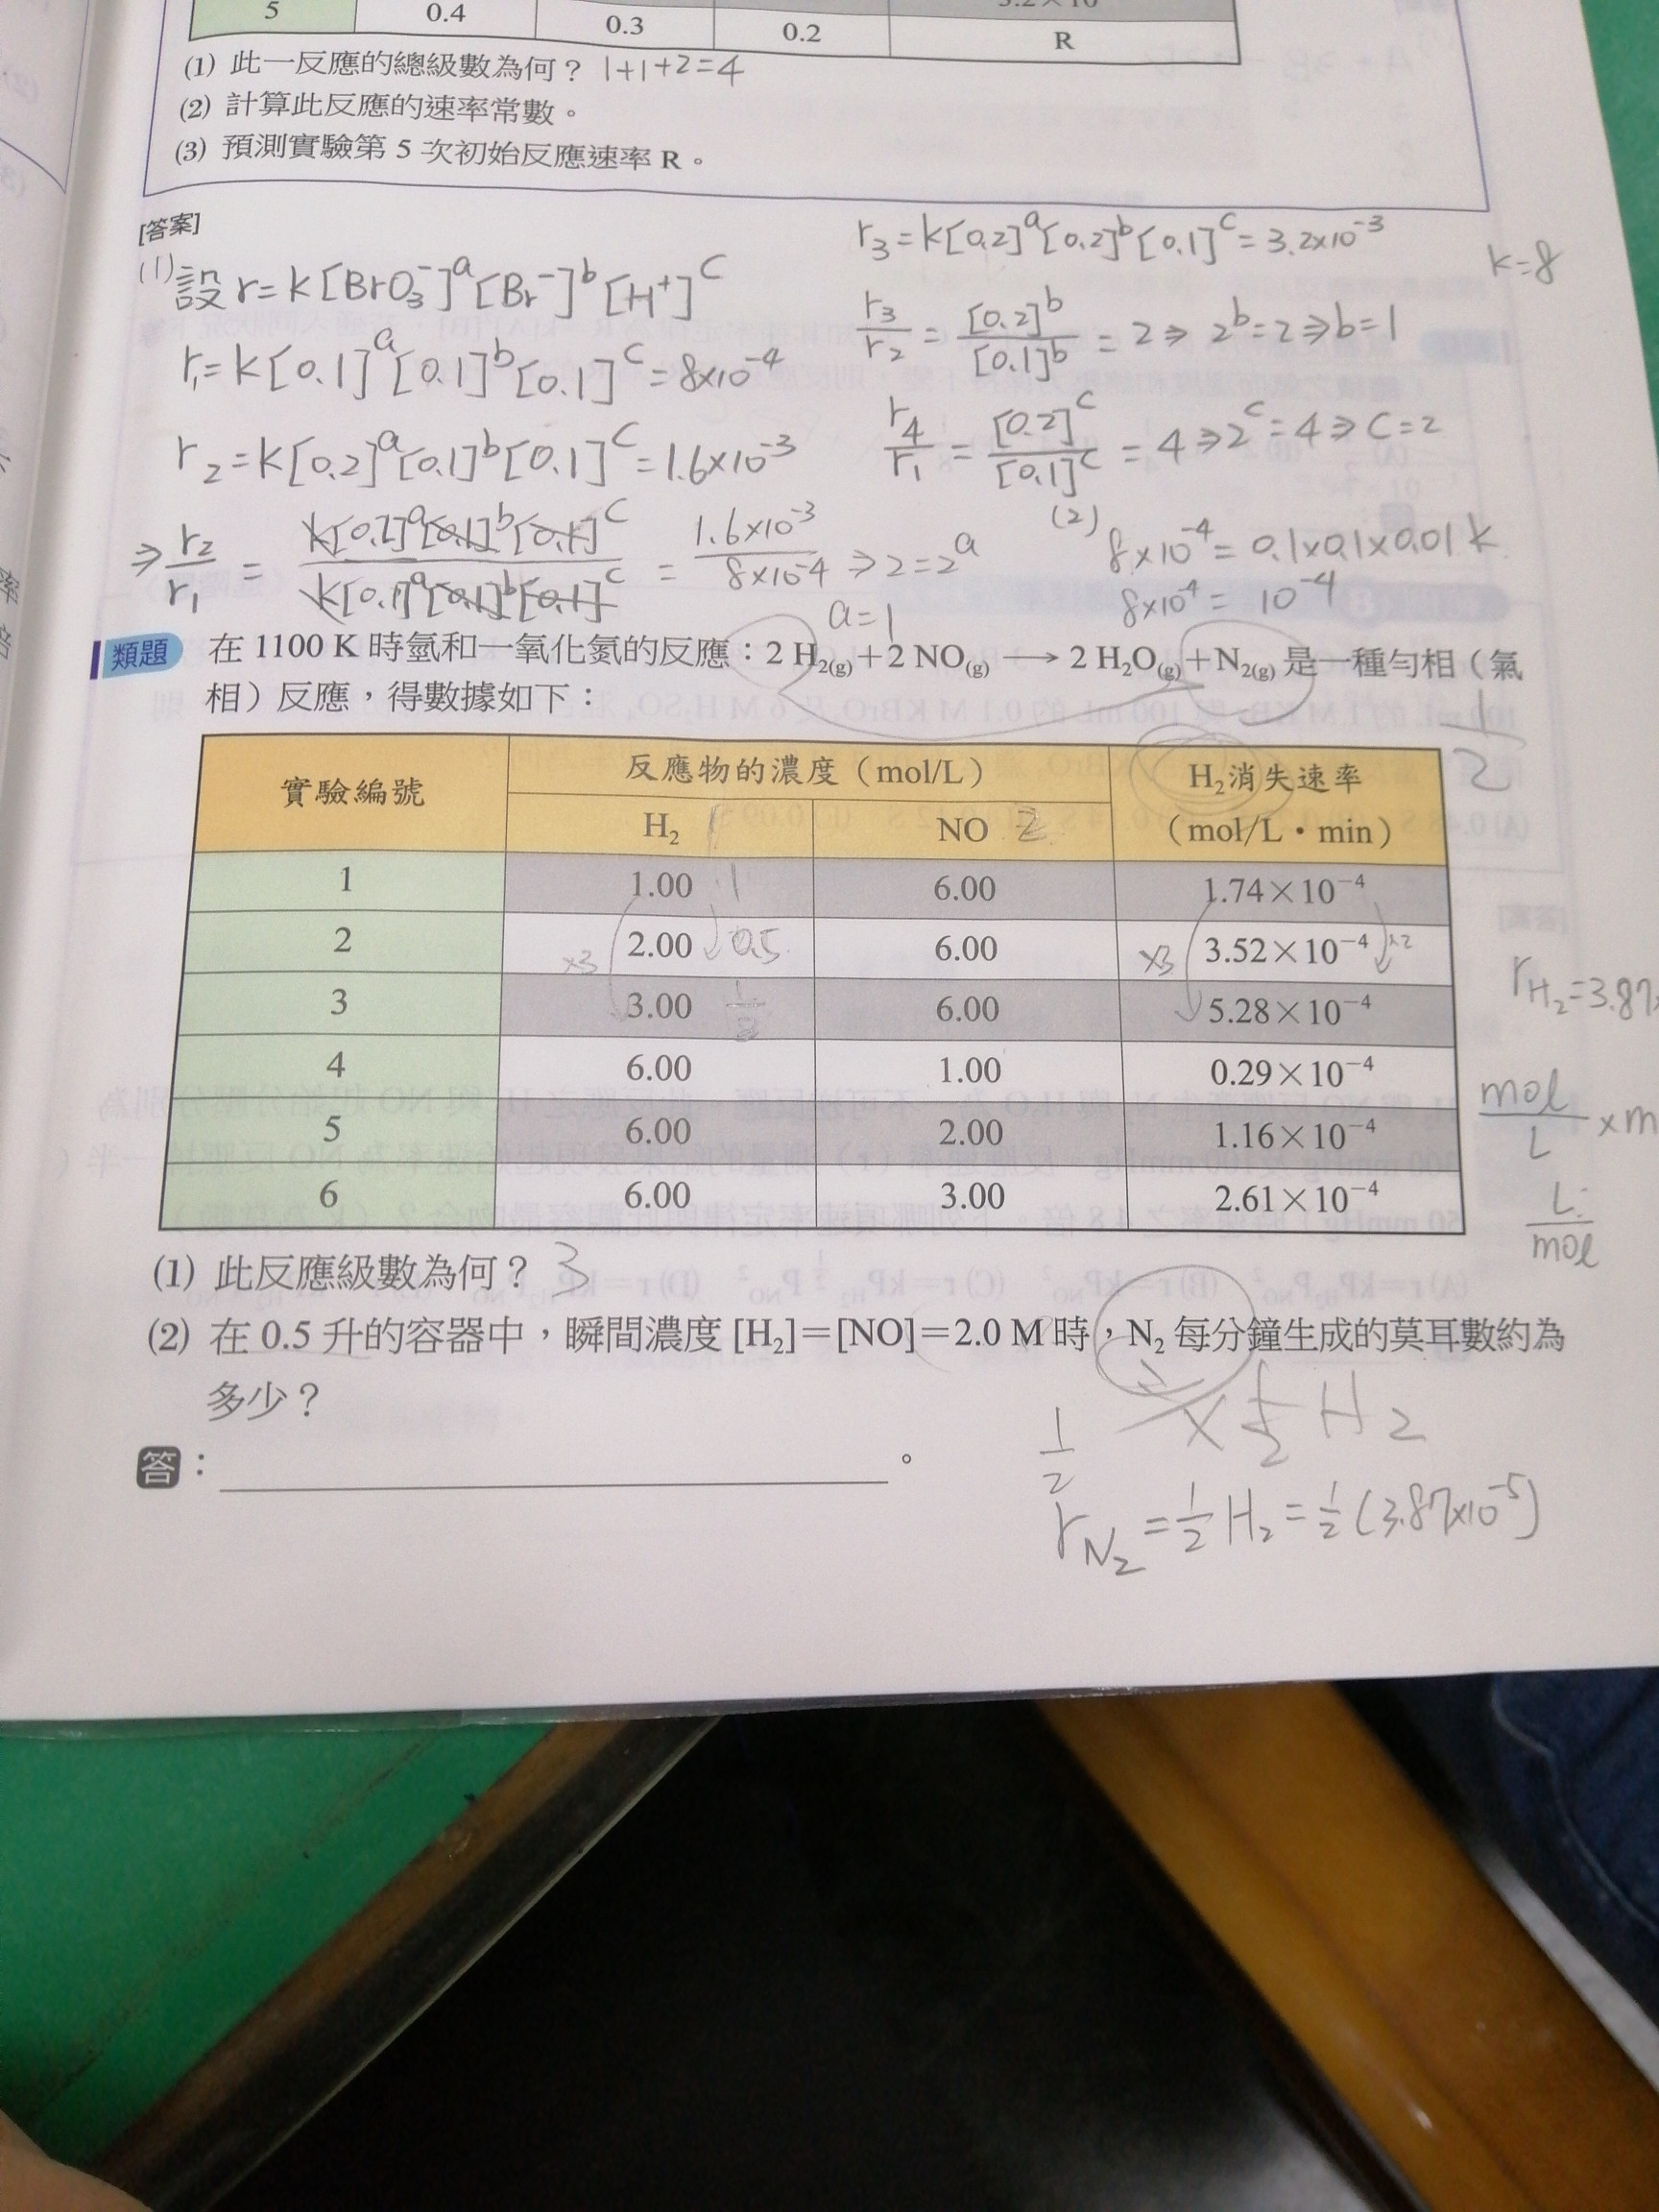 5 0.4 0.3 0.2 R
(1) 此一反應的總級數為何？ 1+1+2=4
(2) 計算此反應的速率常數。
(3) 預測實驗第 5 次初始反應速率 R。
[答案]
(1) 設 r=k[BrO₃⁻]ᵃ[Br⁻]ᵇ[H⁺]ᶜ
r₁=k[0.1]ᵃ[0.1]ᵇ[0.1]ᶜ=8x10⁻⁴
r₂=k[0.2]ᵃ[0.1]ᵇ[0.1]ᶜ=1.6x10⁻³
⇒ r₂/r₁ = k[0.2]ᵃ[0.1]ᵇ[0.1]ᶜ / k[0.1]ᵃ[0.1]ᵇ[0.1]ᶜ = 1.6x10⁻³ / 8x10⁻⁴ ⇒ 2=2ᵃ
a=1
r₃=k[0.2]ᵃ[0.2]ᵇ[0.1]ᶜ=3.2x10⁻³
k=8
r₃/r₂ = [0.2]ᵇ/[0.1]ᵇ = 2 ⇒ 2ᵇ=2 ⇒ b=1
r₄/r₁ = [0.2]ᶜ/[0.1]ᶜ = 4 ⇒ 2ᶜ=4 ⇒ c=2
(2) 8x10⁻⁴=0.1x0.1x0.01k
8x10⁻⁴= 10⁻⁴
類題 在 1100 K 時氫和一氧化氮的反應：2 H₂(g)+2 NO(g) ⟶ 2 H₂O(g)+N₂(g) 是一種勻相（氣
相）反應，得數據如下：
1/2
實驗編號 反應物的濃度（mol/L） H₂消失速率
H₂ 1 NO 2 （mol/L・min）
1 1.00 1 6.00 1.74×10⁻⁴
2 x3 2.00 0.5 6.00 x3 3.52×10⁻⁴ x2
3 3.00 6.00 5.28×10⁻⁴
4 6.00 1.00 0.29×10⁻⁴
5 6.00 2.00 1.16×10⁻⁴
6 6.00 3.00 2.61×10⁻⁴
r H₂=3.87
mol/L xm
L/mol
(1) 此反應級數為何？ 3
(2) 在 0.5 升的容器中，瞬間濃度 [H₂]=[NO]=2.0 M 時，N₂ 每分鐘生成的莫耳數約為
多少？
x 1/2 H₂
答： 。
1/2
r N₂ = 1/2 H₂ = 1/2 (3.87x10⁻⁵)